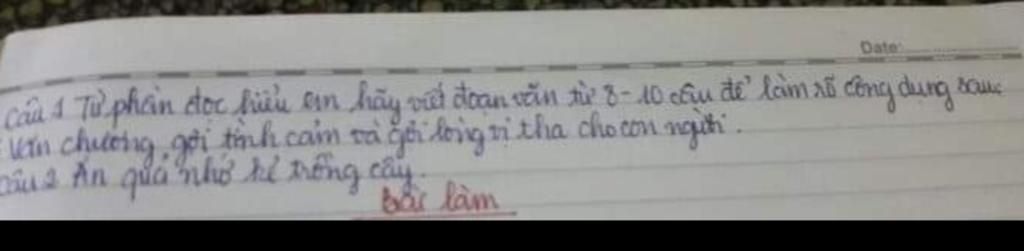 Date:
Câu 1 Từ phần đọc hiểu em hãy viết đoạn văn từ 8-10 câu để làm rõ công dụng sau:
văn chương gợi tình cảm và gợi lòng vị tha cho con người.
Câu 2 Ăn quả nhớ kẻ trồng cây.
Bài làm